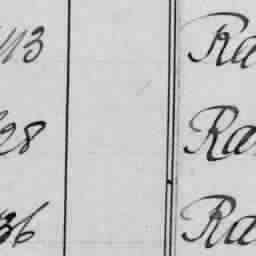 113 Ra
28 Ra
36 Ra